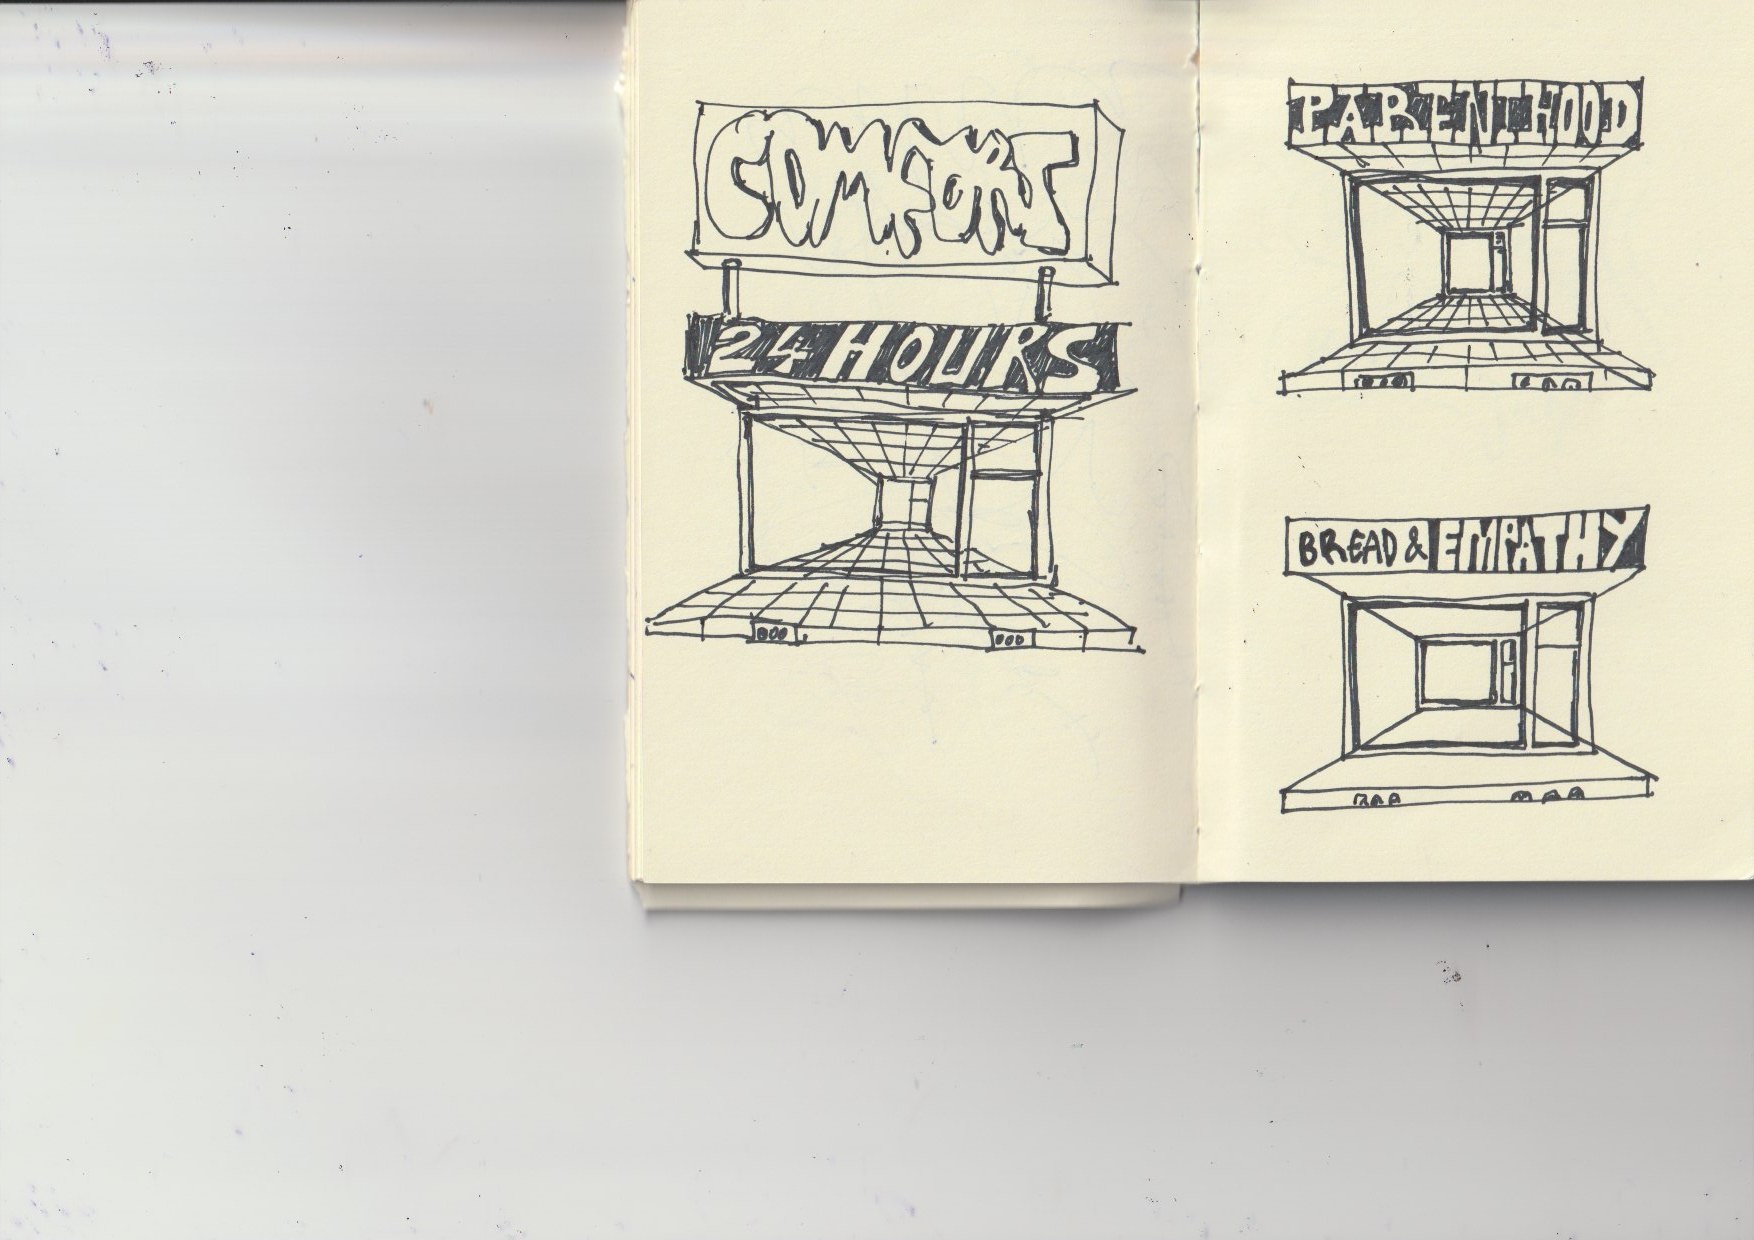 COMFORT
24 HOURS
PARENTHOOD
BREAD & EMPATHY